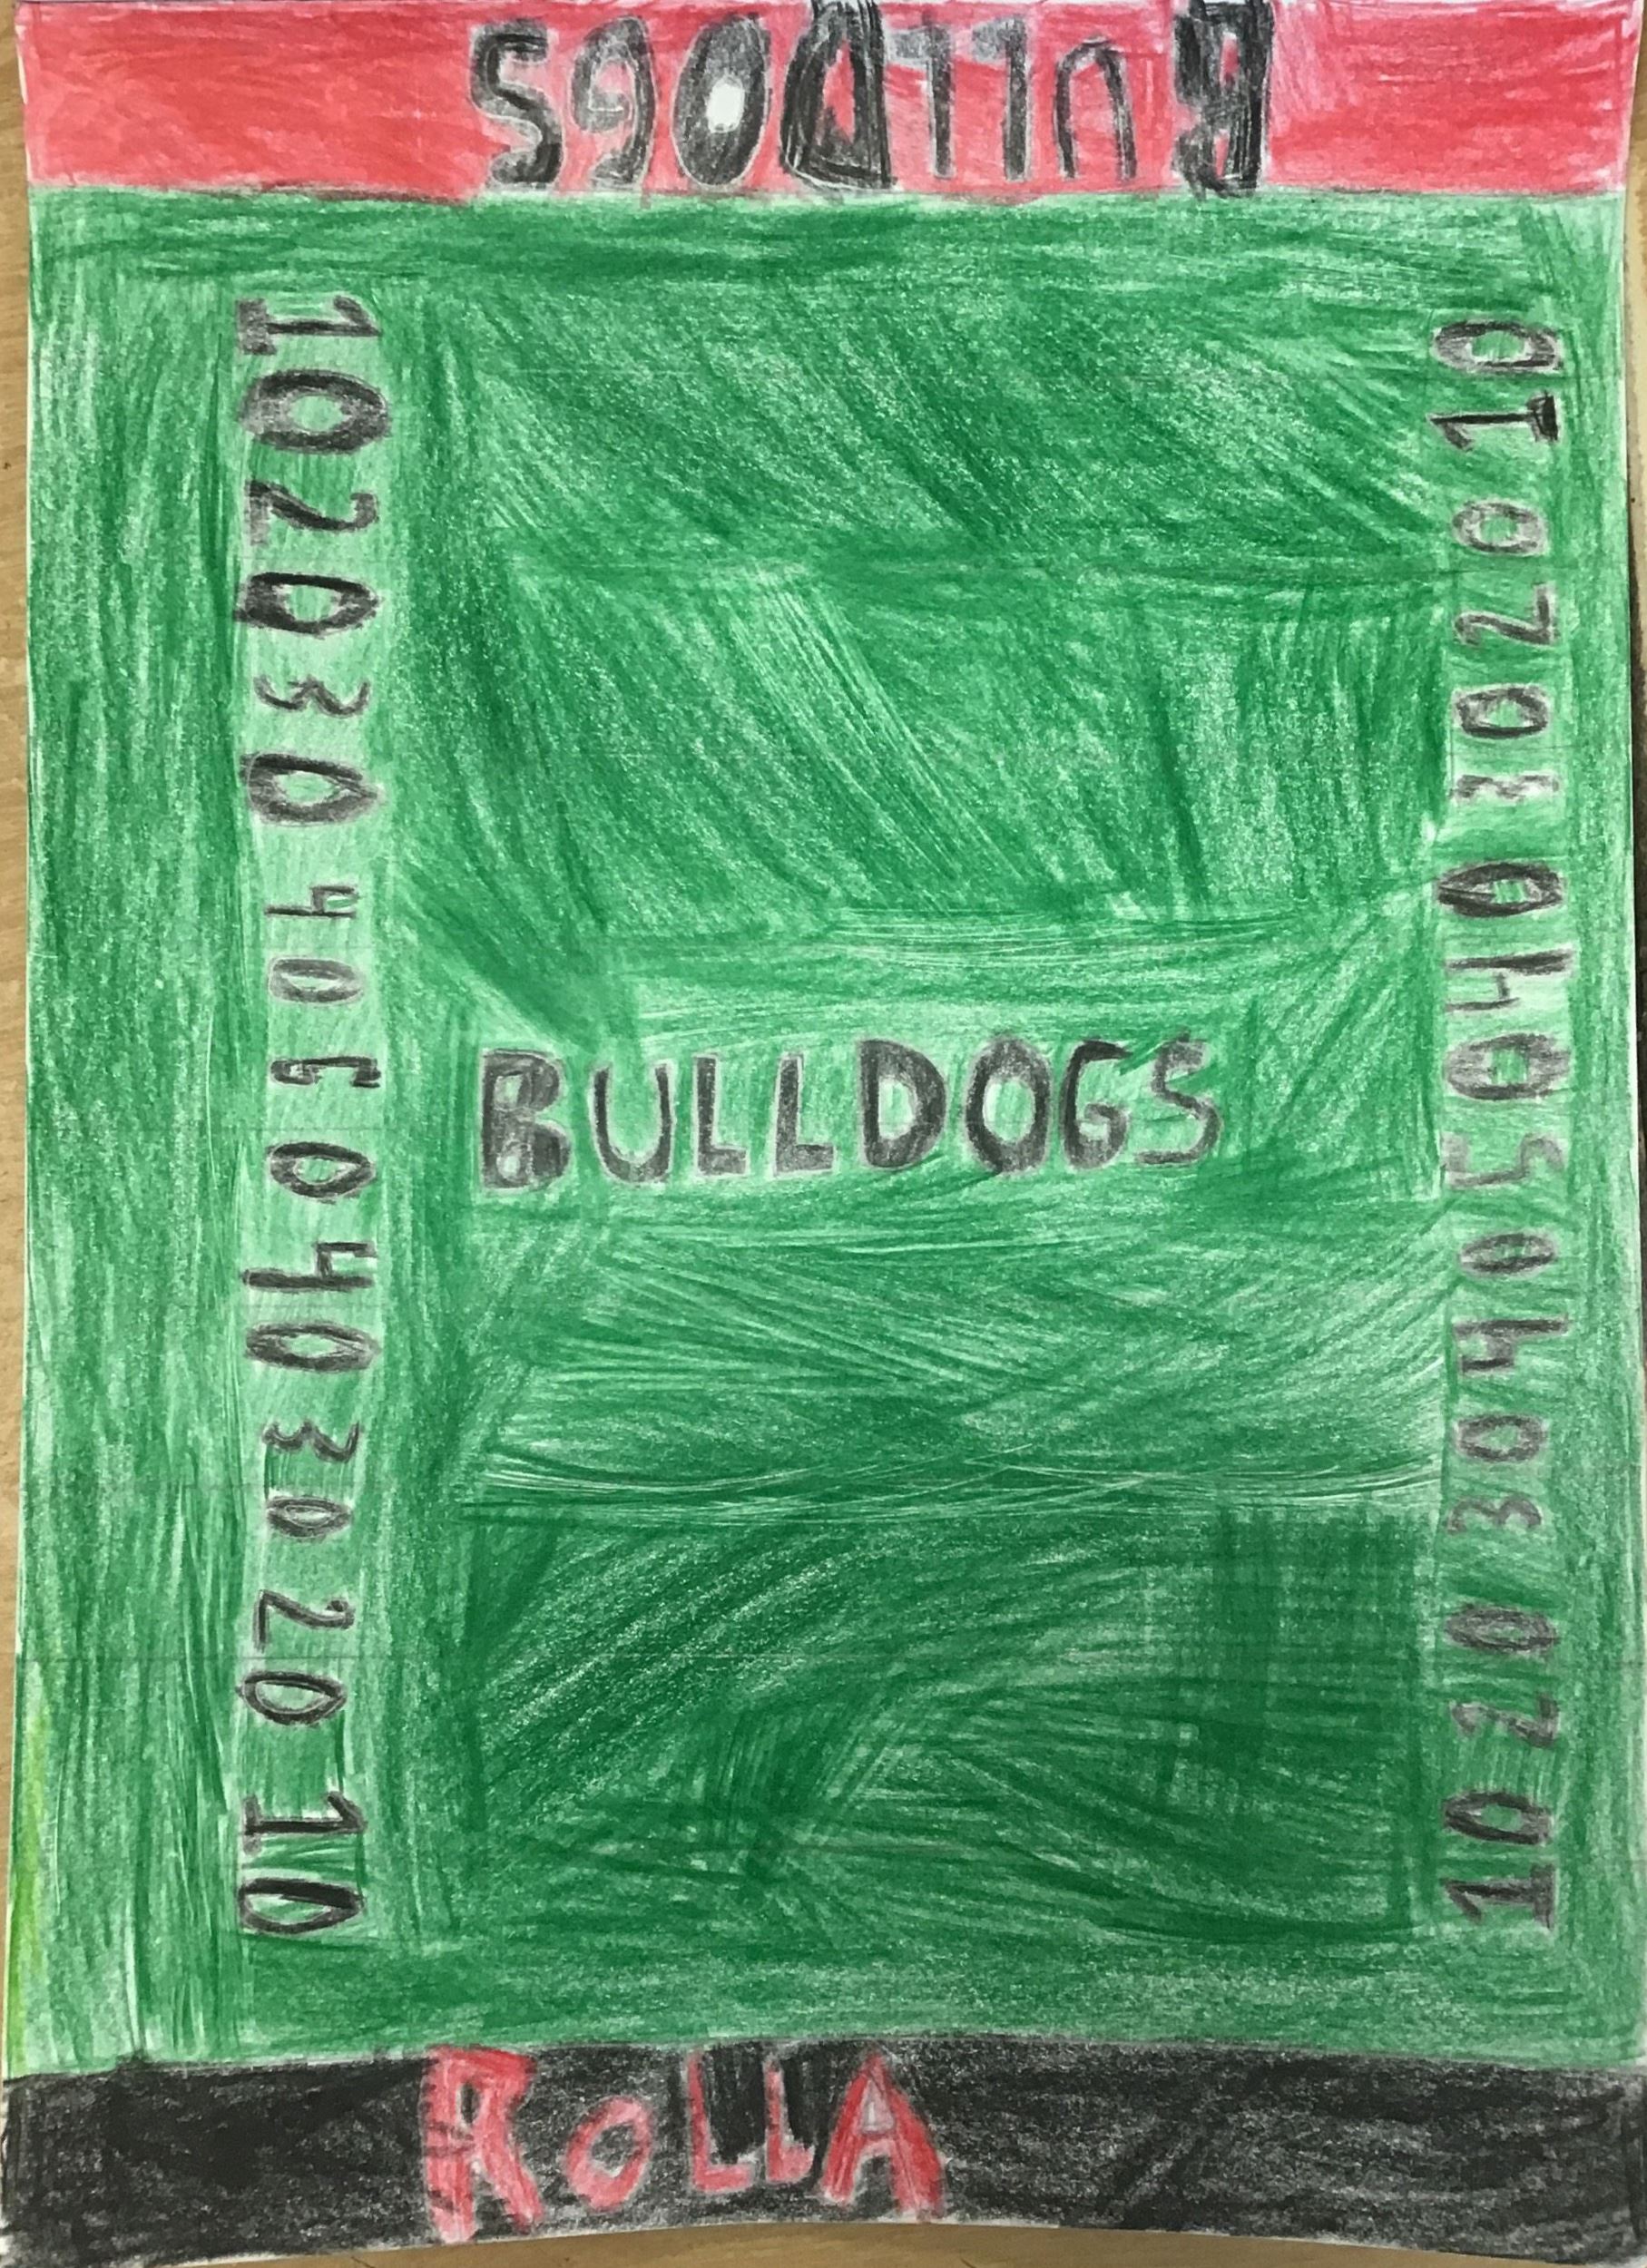 BULLDOGS
10 20 30 40 50 40 30 20 10
BULLDOGS
10 20 30 40 50 40 30 20 10
ROLLA